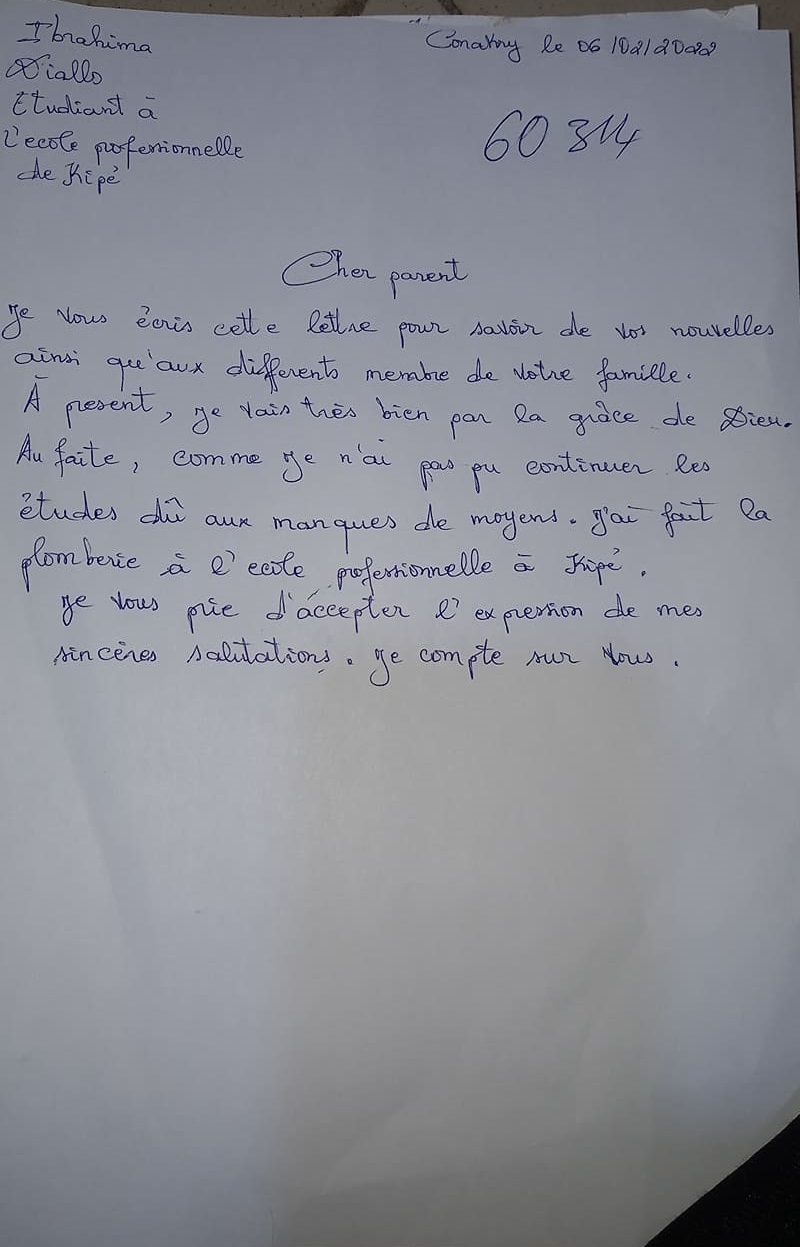 Ibrahima
Diallo
Etudiant à
l'ecole professionnelle
de Kipé
Conakry le 06/02/2022
60 314
Cher parent
Je vous écris cette lettre pour savoir de vos nouvelles
ainsi qu'aux differents membre de votre famille.
À present, je vais très bien par la grâce de Dieu.
Au faite, comme je n'ai pas pu continuer les
études dû aux manques de moyens. J'ai fait la
plomberie à l'ecole professionnelle à Kipé.
je vous prie d'áccepter l'expression de mes
sincères salutations. Je compte sur vous.